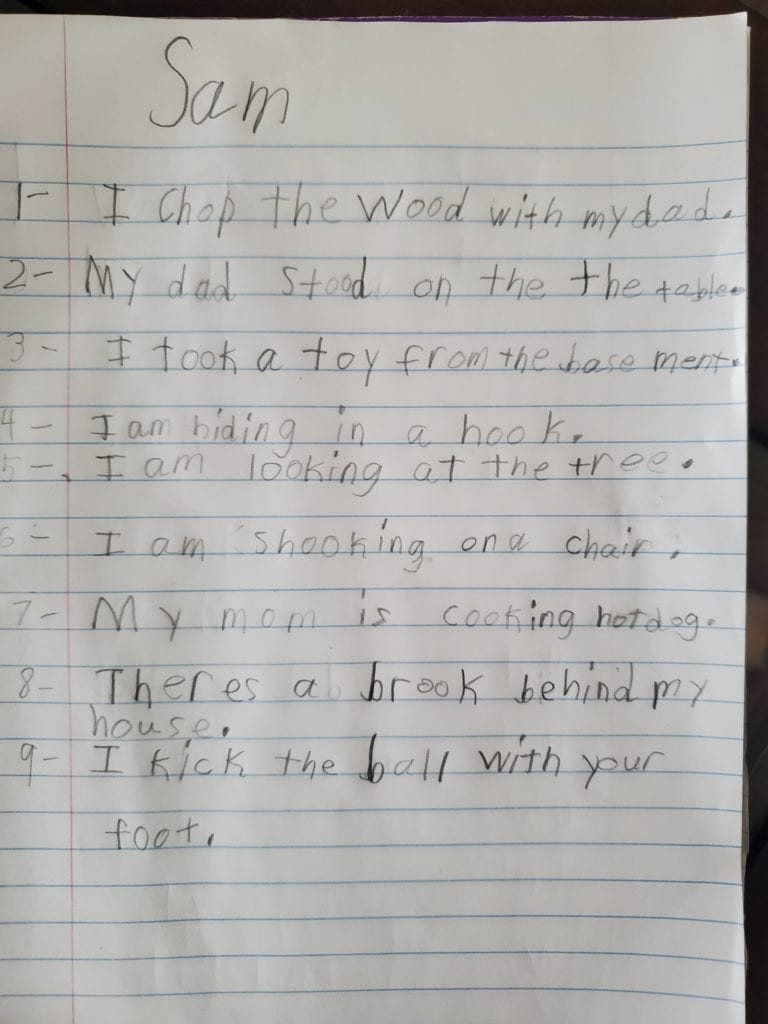 Sam
1- I Chop the Wood with my dad.
2- My dad stood on the the table.
3- I took a toy from the base ment.
4- I am hiding in a hook.
5- I am looking at the tree.
6- I am shooking on a chair.
7- My mom is cooking hotdog.
8- Theres a brook behind my
house.
9- I kick the ball with your
foot.